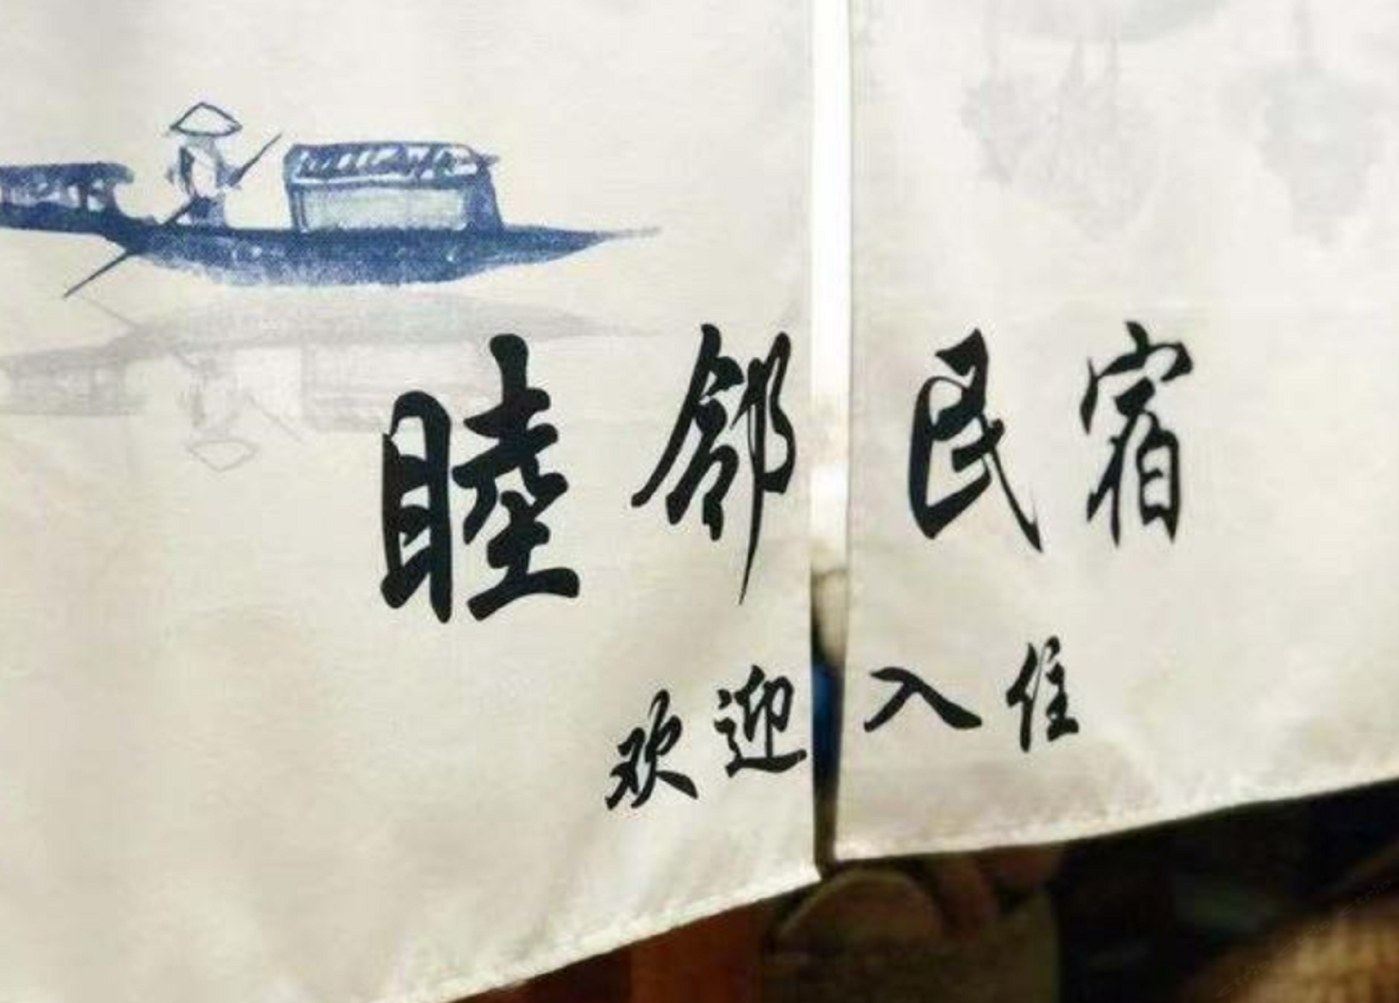 睦邻民宿
欢迎入住